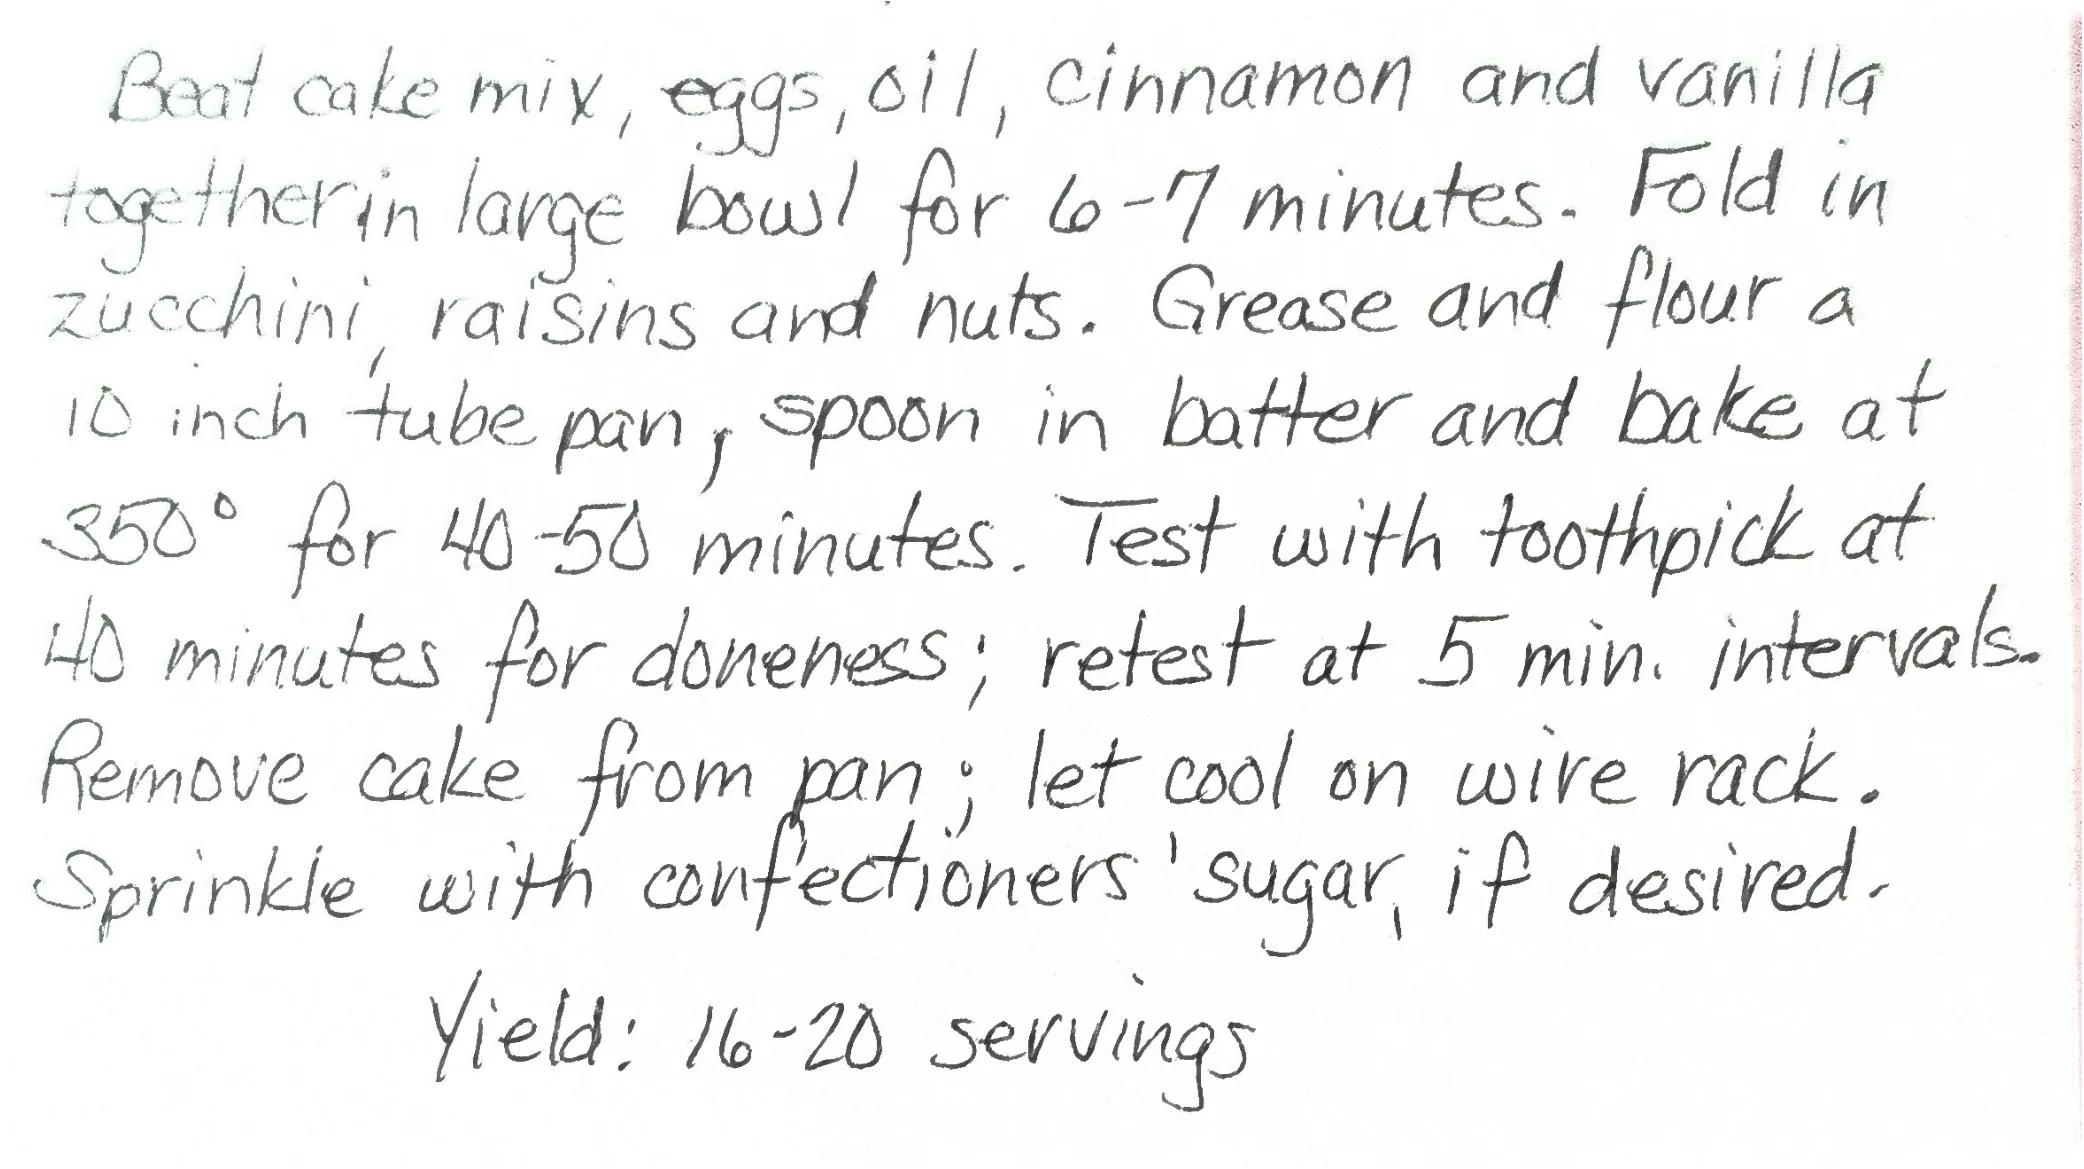 Beat cake mix, eggs, oil, cinnamon and vanilla
together in large bowl for 6-7 minutes. Fold in
zucchini, raisins and nuts. Grease and flour a
10 inch tube pan, spoon in batter and bake at
350° for 40-50 minutes. Test with toothpick at
40 minutes for doneness; retest at 5 min. intervals.
Remove cake from pan; let cool on wire rack.
Sprinkle with confectioners' sugar, if desired.
Yield: 16-20 servings